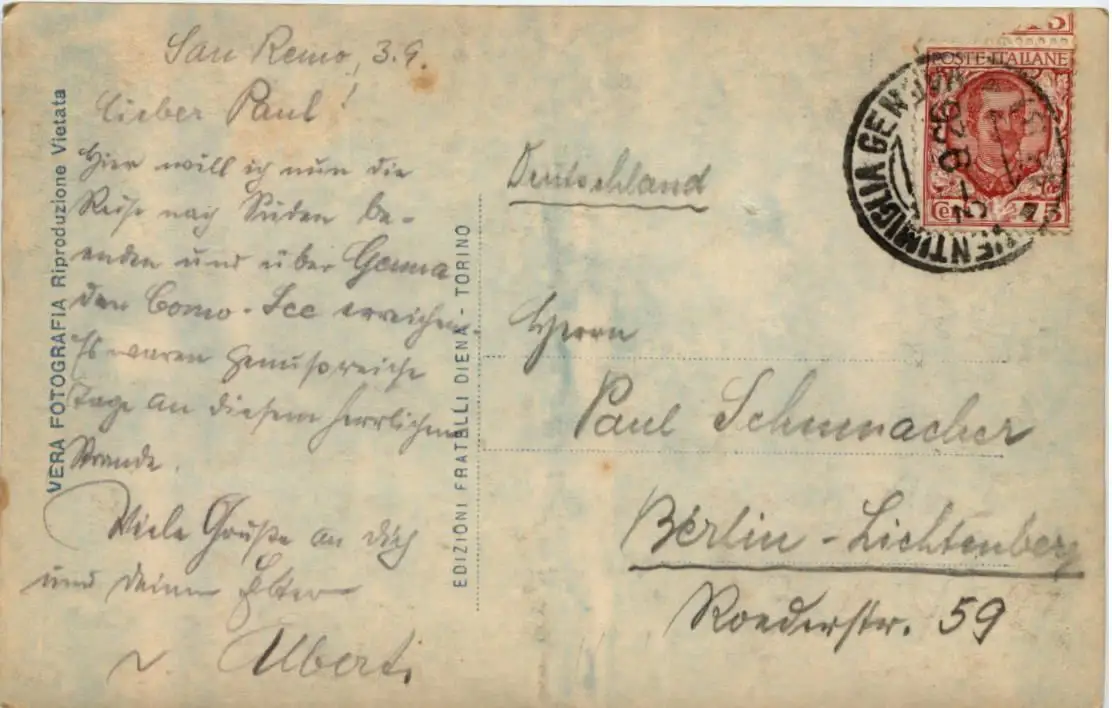 San Remo, 3.9.
Lieber Paul!
Hier will ich nun die
Reise nach Süden be-
enden und über Genua
den Como-See erreichen.
Es waren genußreiche
Tage an diesem herrlichen
Strande.
Viele Grüße an dich
und deine Eltern
v. Alberti
VERA FOTOGRAFIA Riproduzione Vietata
EDIZIONI FRATELLI DIENA - TORINO
POSTE ITALIANE
VENTIMIGLIA
Deutschland
Herrn
Paul Schumacher
Berlin-Lichtenberg
Roederstr. 59